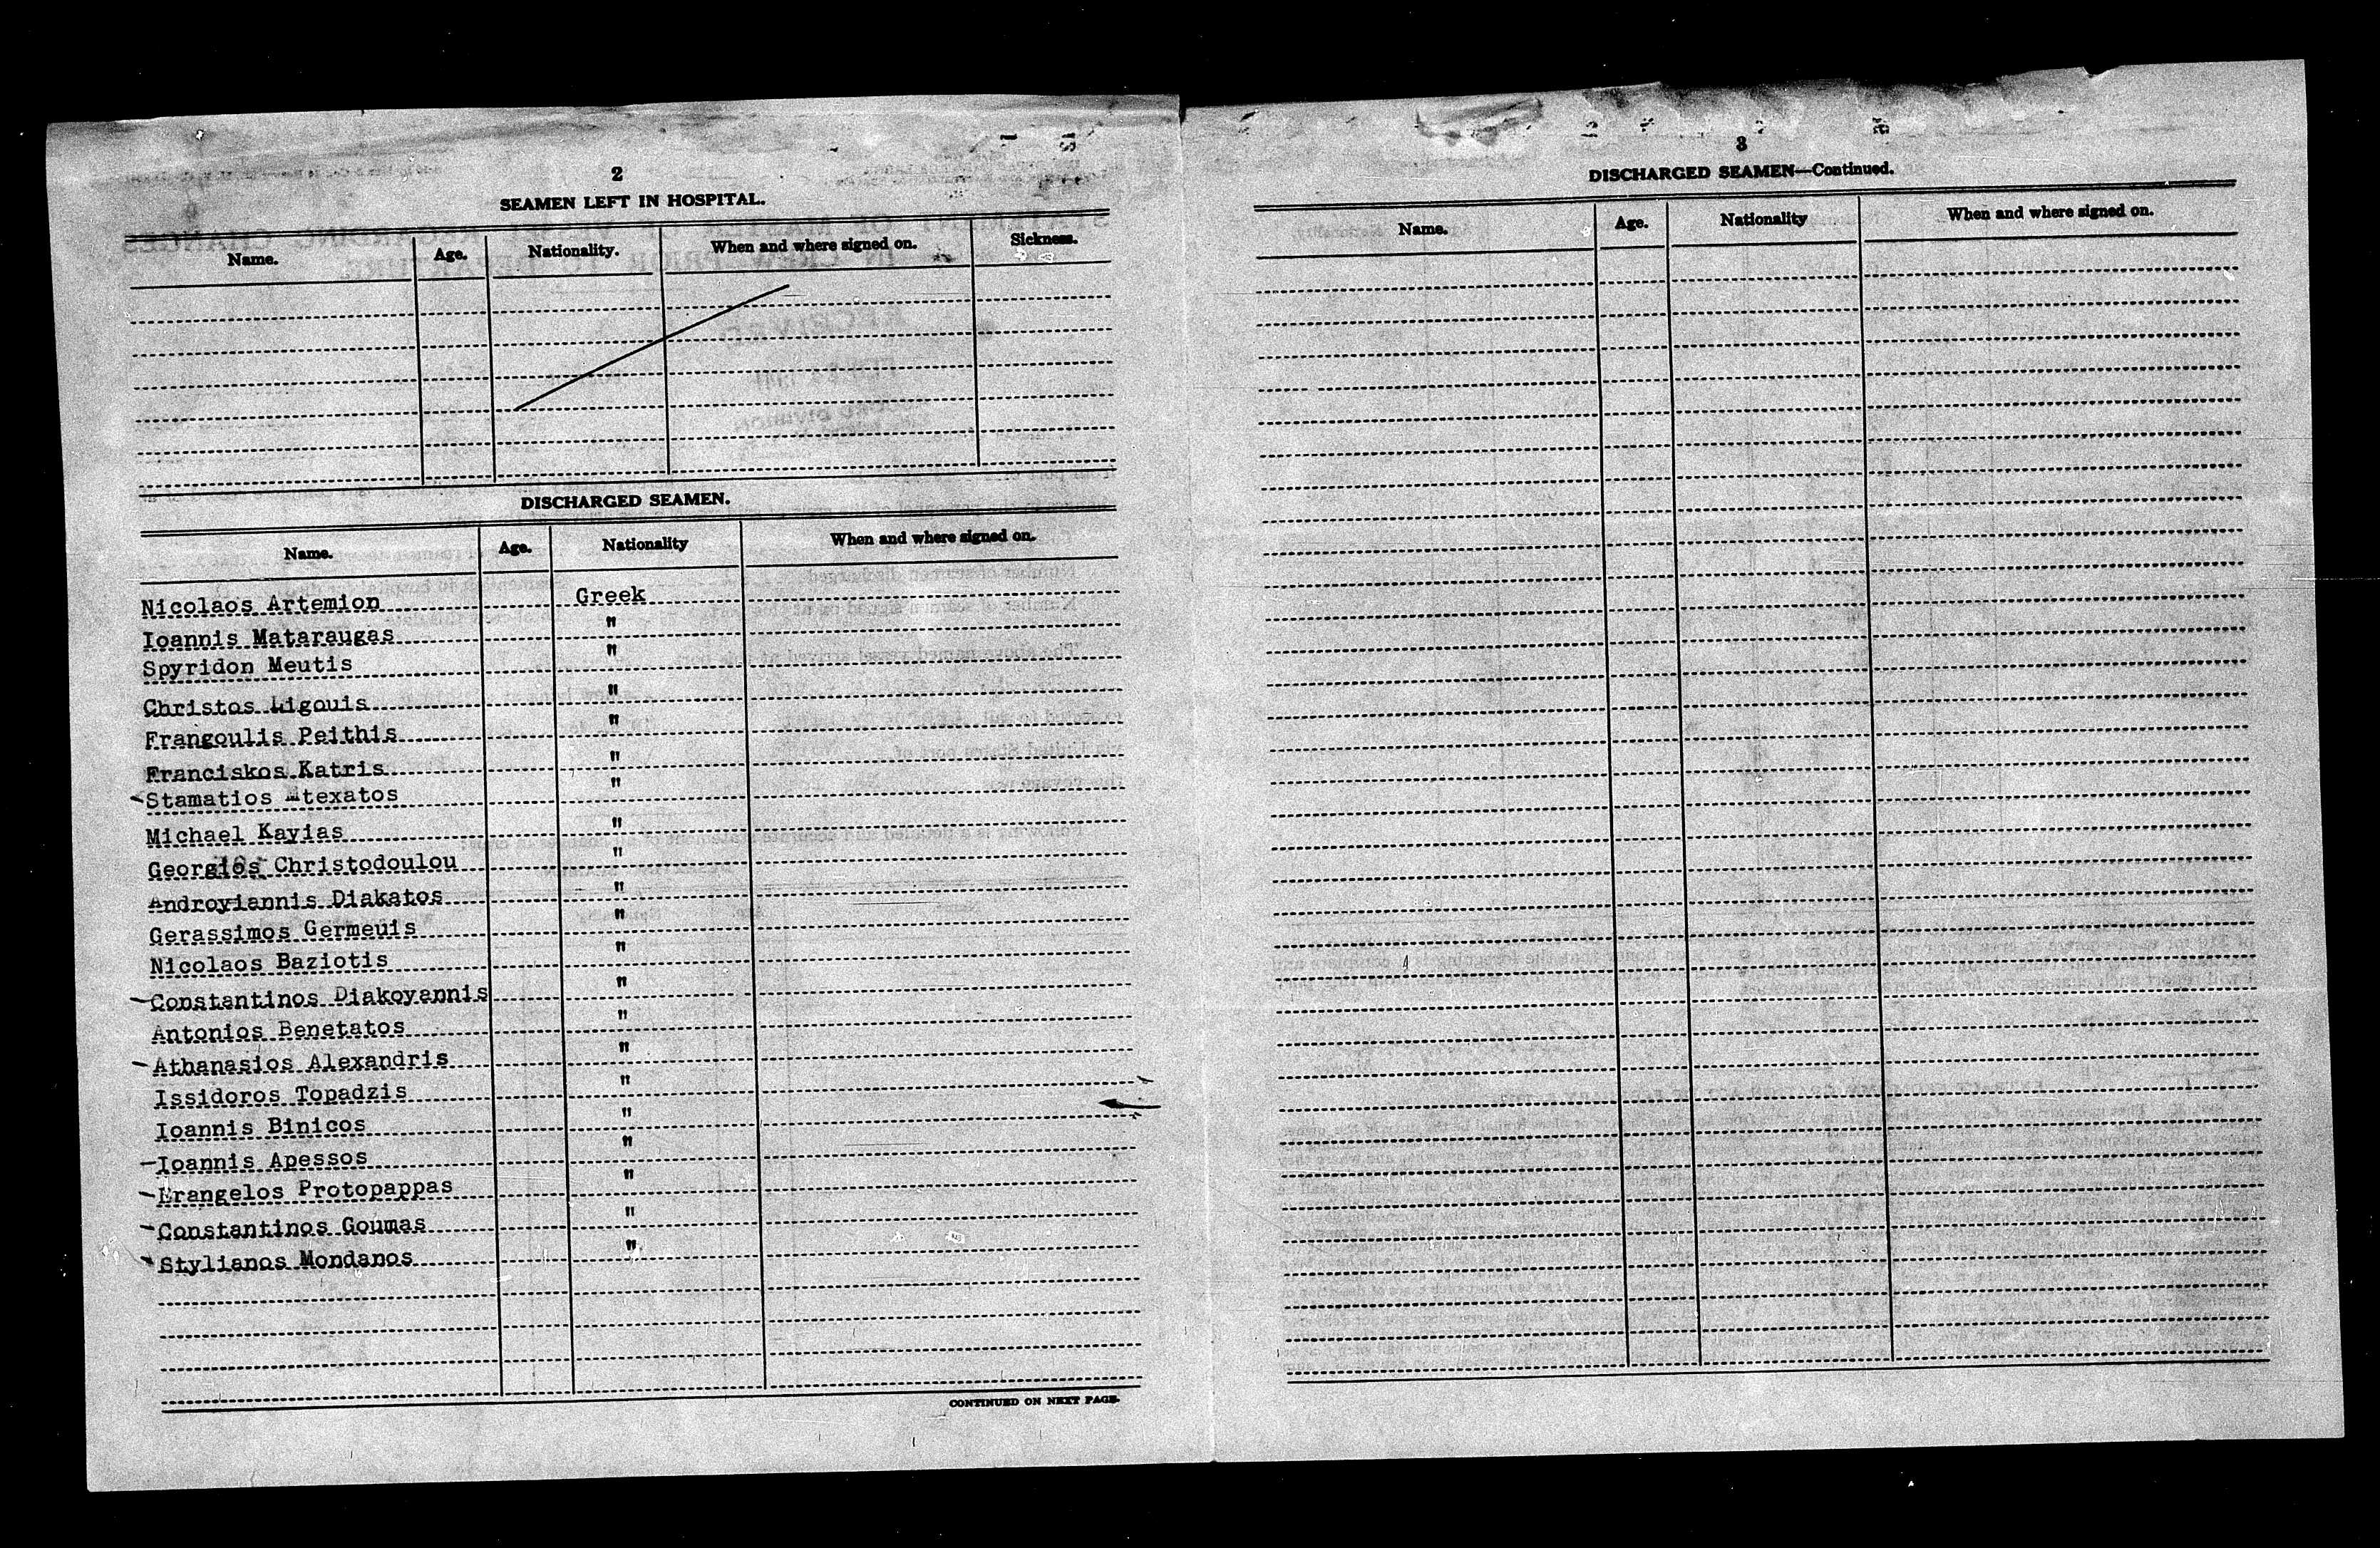 2
SEAMEN LEFT IN HOSPITAL.
Name. Age. Nationality. When and where signed on. Sickness.
DISCHARGED SEAMEN.
Name. Age. Nationality When and where signed on.
Nicolaos Artemion Greek
Ioannis Mataraugas "
Spyridon Meutis "
Christos Ligouis "
Frangoulis Peithis "
Franciskos Katris "
Stamatios texatos "
Michael Kayias "
Georgios Christodoulou "
Androyiannis Diakatos "
Gerassimos Germeuis "
Nicolaos Baziotis "
Constantinos Diakoyannis "
Antonios Benetatos "
Athanasios Alexandris "
Issidoros Topadzis "
Ioannis Binicos "
Ioannis Apessos "
Erangelos Protopappas "
Constantinos Goumas "
Stylianos Mondanos "
CONTINUED ON NEXT PAGE.
3
DISCHARGED SEAMEN—Continued.
Name. Age. Nationality When and where signed on.